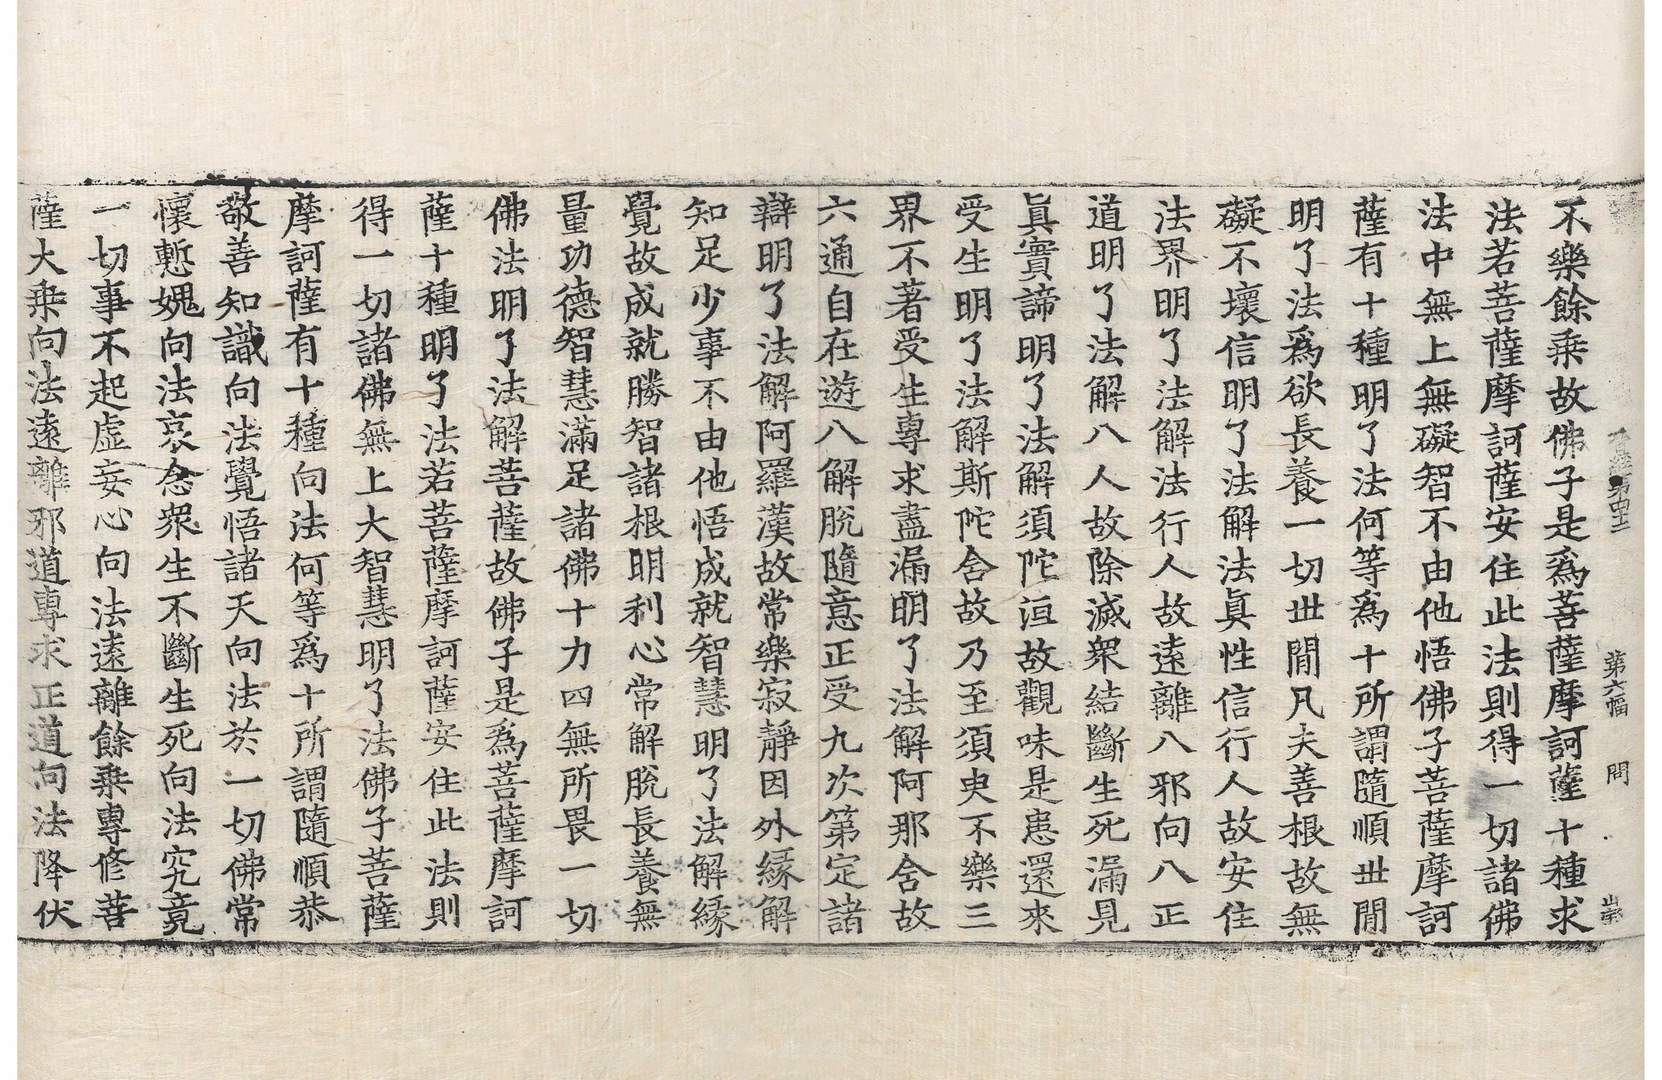 第四十二 第六幅 問
不樂餘乗故佛子是爲菩薩摩訶薩十種求
法若菩薩摩訶薩安住此法則得一切諸佛
法中無上無礙智不由他悟佛子菩薩摩訶
薩有十種明了法何等爲十所謂隨順世間
明了法爲欲長養一切世間凡夫善根故無
礙不壞信明了法解法眞性信行人故安住
法界明了法解法行人故遠離八邪向八正
道明了法解八人故除滅衆結斷生死漏見
眞實諦明了法解須陀洹故觀味是患還來
受生明了法解斯陀含故乃至須臾不樂三
界不著受生專求盡漏明了法解阿那含故
六通自在遊八解脫隨意正受九次第定諸
辯明了法解阿羅漢故常樂寂靜因外縁解
知足少事不由他悟成就智慧明了法解縁
覺故成就勝智諸根明利心常解脫長養無
量功德智慧滿足諸佛十力四無所畏一切
佛法明了法解菩薩故佛子是爲菩薩摩訶
薩十種明了法若菩薩摩訶薩安住此法則
得一切諸佛無上大智慧明了法佛子菩薩
摩訶薩有十種向法何等爲十所謂隨順恭
敬善知識向法覺悟諸天向法於一切佛常
懷慙媿向法哀念衆生不斷生死向法究竟
一切事不起虛妄心向法遠離餘乗專修菩
薩大乗向法遠離邪道專求正道向法降伏